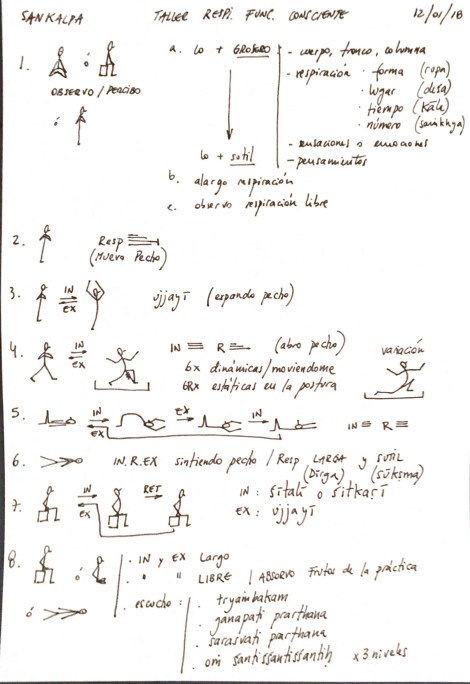 SANKALPA TALLER RESPI. FUNC. CONSCIENTE 12/01/18
1. ó a. lo + GROSERO - cuerpo, tronco, columna
- respiración · forma (rupa)
· lugar (deśa)
OBSERVO / PERCIBO · tiempo (Kāla)
· número (saṁkhya)
ó - sensaciones o emociones
lo + sutil - pensamientos
b. alargo respiración
c. observo respiración libre
2. Resp
(Muevo Pecho)
3. IN EX ujjayī (expando pecho)
4. IN EX IN R (abro pecho) variación
6x dinámicas/moviendome
6Rx estáticas en la postura
5. IN EX EX IN IN R
6. IN.R.EX sintiendo pecho / Resp LARGA y SUTIL
(Dīrga) (sūkṣma)
7. IN EX RET IN: śītalī o sitkarī
EX: ujjayī
8. ó . IN y EX Largo
. " " LIBRE / ABSORVO Frutos de la práctica
ó . escucho: . tryambakam
. ganapati prarthana
. sarasvati prarthana
. oṁ śantiśśantiśśantiḥ x 3 niveles